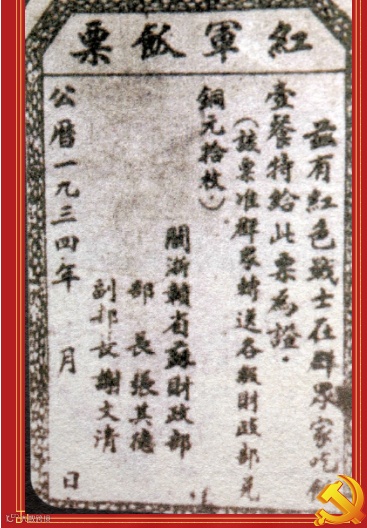 紅軍飯票
茲有紅色戰士在群眾家吃飯
壹餐特給此票為證.
(該票准群眾轉送各級財政部兌
銅元拾枚)
閩浙贛省蘇財政部
部 長 張其德
副部長 謝文清
公曆一九三四年 月 日